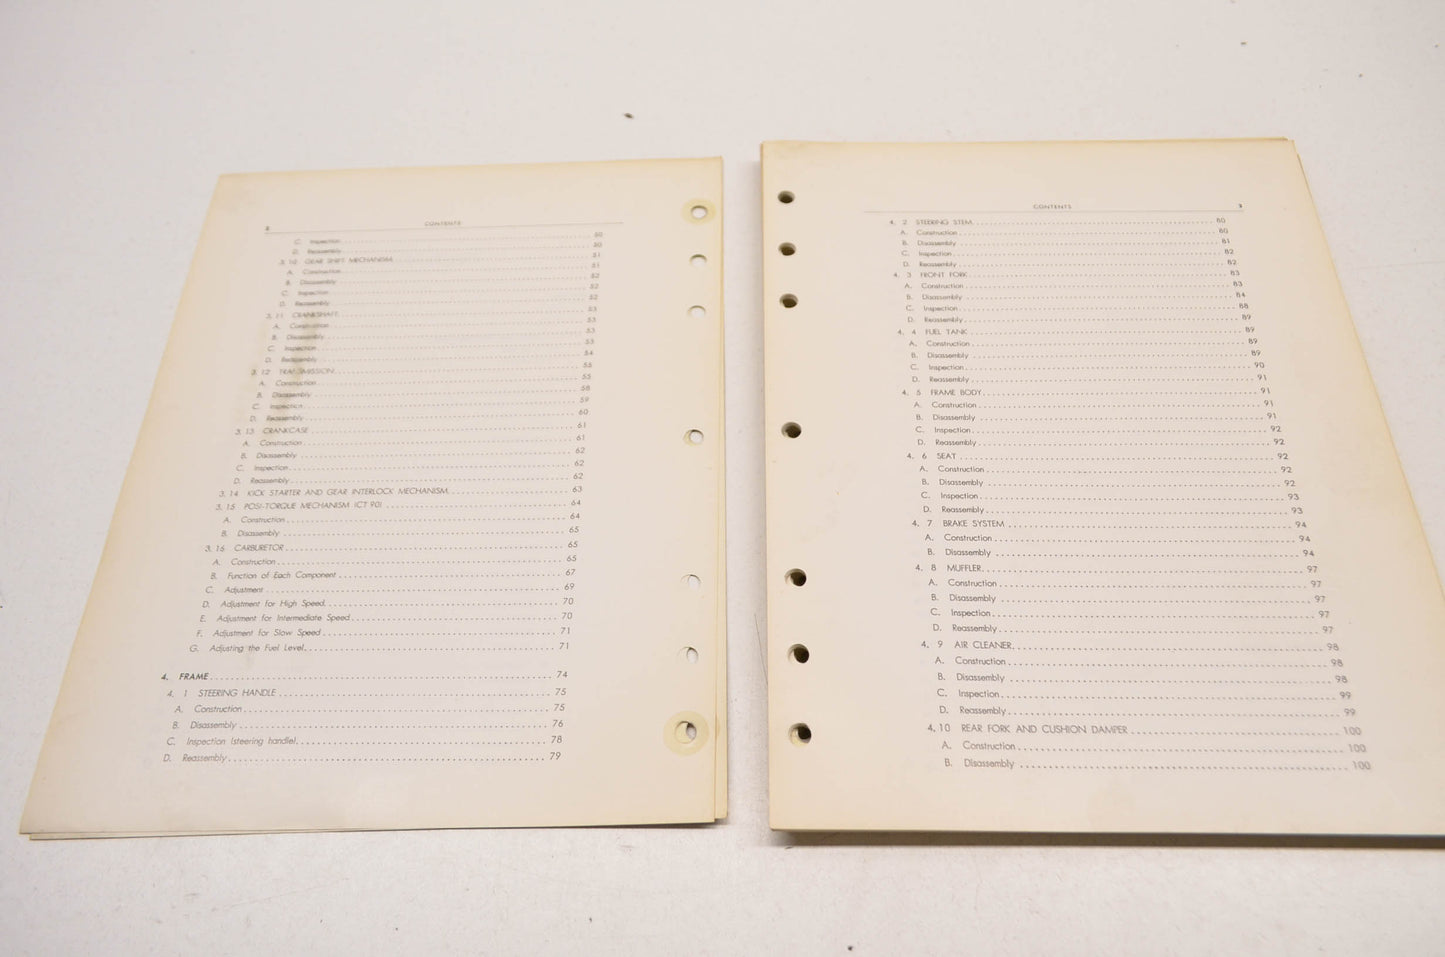 2 CONTENTS
C. Inspection 50
D. Reassembly 50
3. 10 GEAR SHIFT MECHANISM 51
A. Construction 51
B. Disassembly 52
C. Inspection 52
D. Reassembly 52
3. 11 CRANKSHAFT 53
A. Construction 53
B. Disassembly 53
C. Inspection 53
D. Reassembly 54
3. 12 TRANSMISSION 55
A. Construction 55
B. Disassembly 58
C. Inspection 59
D. Reassembly 60
3. 13 CRANKCASE 61
A. Construction 61
B. Disassembly 62
C. Inspection 62
D. Reassembly 62
3. 14 KICK STARTER AND GEAR INTERLOCK MECHANISM 63
3. 15 POSI-TORQUE MECHANISM (CT 90) 64
A. Construction 64
B. Disassembly 65
3. 16 CARBURETOR 65
A. Construction 65
B. Function of Each Component 67
C. Adjustment 69
D. Adjustment for High Speed 70
E. Adjustment for Intermediate Speed 70
F. Adjustment for Slow Speed 71
G. Adjusting the Fuel Level 71
4. FRAME 74
4. 1 STEERING HANDLE 75
A. Construction 75
B. Disassembly 76
C. Inspection (steering handle) 78
D. Reassembly 79
CONTENTS 3
4. 2 STEERING STEM 80
A. Construction 80
B. Disassembly 81
C. Inspection 82
D. Reassembly 82
4. 3 FRONT FORK 83
A. Construction 83
B. Disassembly 84
C. Inspection 88
D. Reassembly 89
4. 4 FUEL TANK 89
A. Construction 89
B. Disassembly 89
C. Inspection 90
D. Reassembly 91
4. 5 FRAME BODY 91
A. Construction 91
B. Disassembly 91
C. Inspection 92
D. Reassembly 92
4. 6 SEAT 92
A. Construction 92
B. Disassembly 92
C. Inspection 93
D. Reassembly 93
4. 7 BRAKE SYSTEM 94
A. Construction 94
B. Disassembly 94
4. 8 MUFFLER 97
A. Construction 97
B. Disassembly 97
C. Inspection 97
D. Reassembly 97
4. 9 AIR CLEANER 98
A. Construction 98
B. Disassembly 98
C. Inspection 99
D. Reassembly 99
4. 10 REAR FORK AND CUSHION DAMPER 100
A. Construction 100
B. Disassembly 100